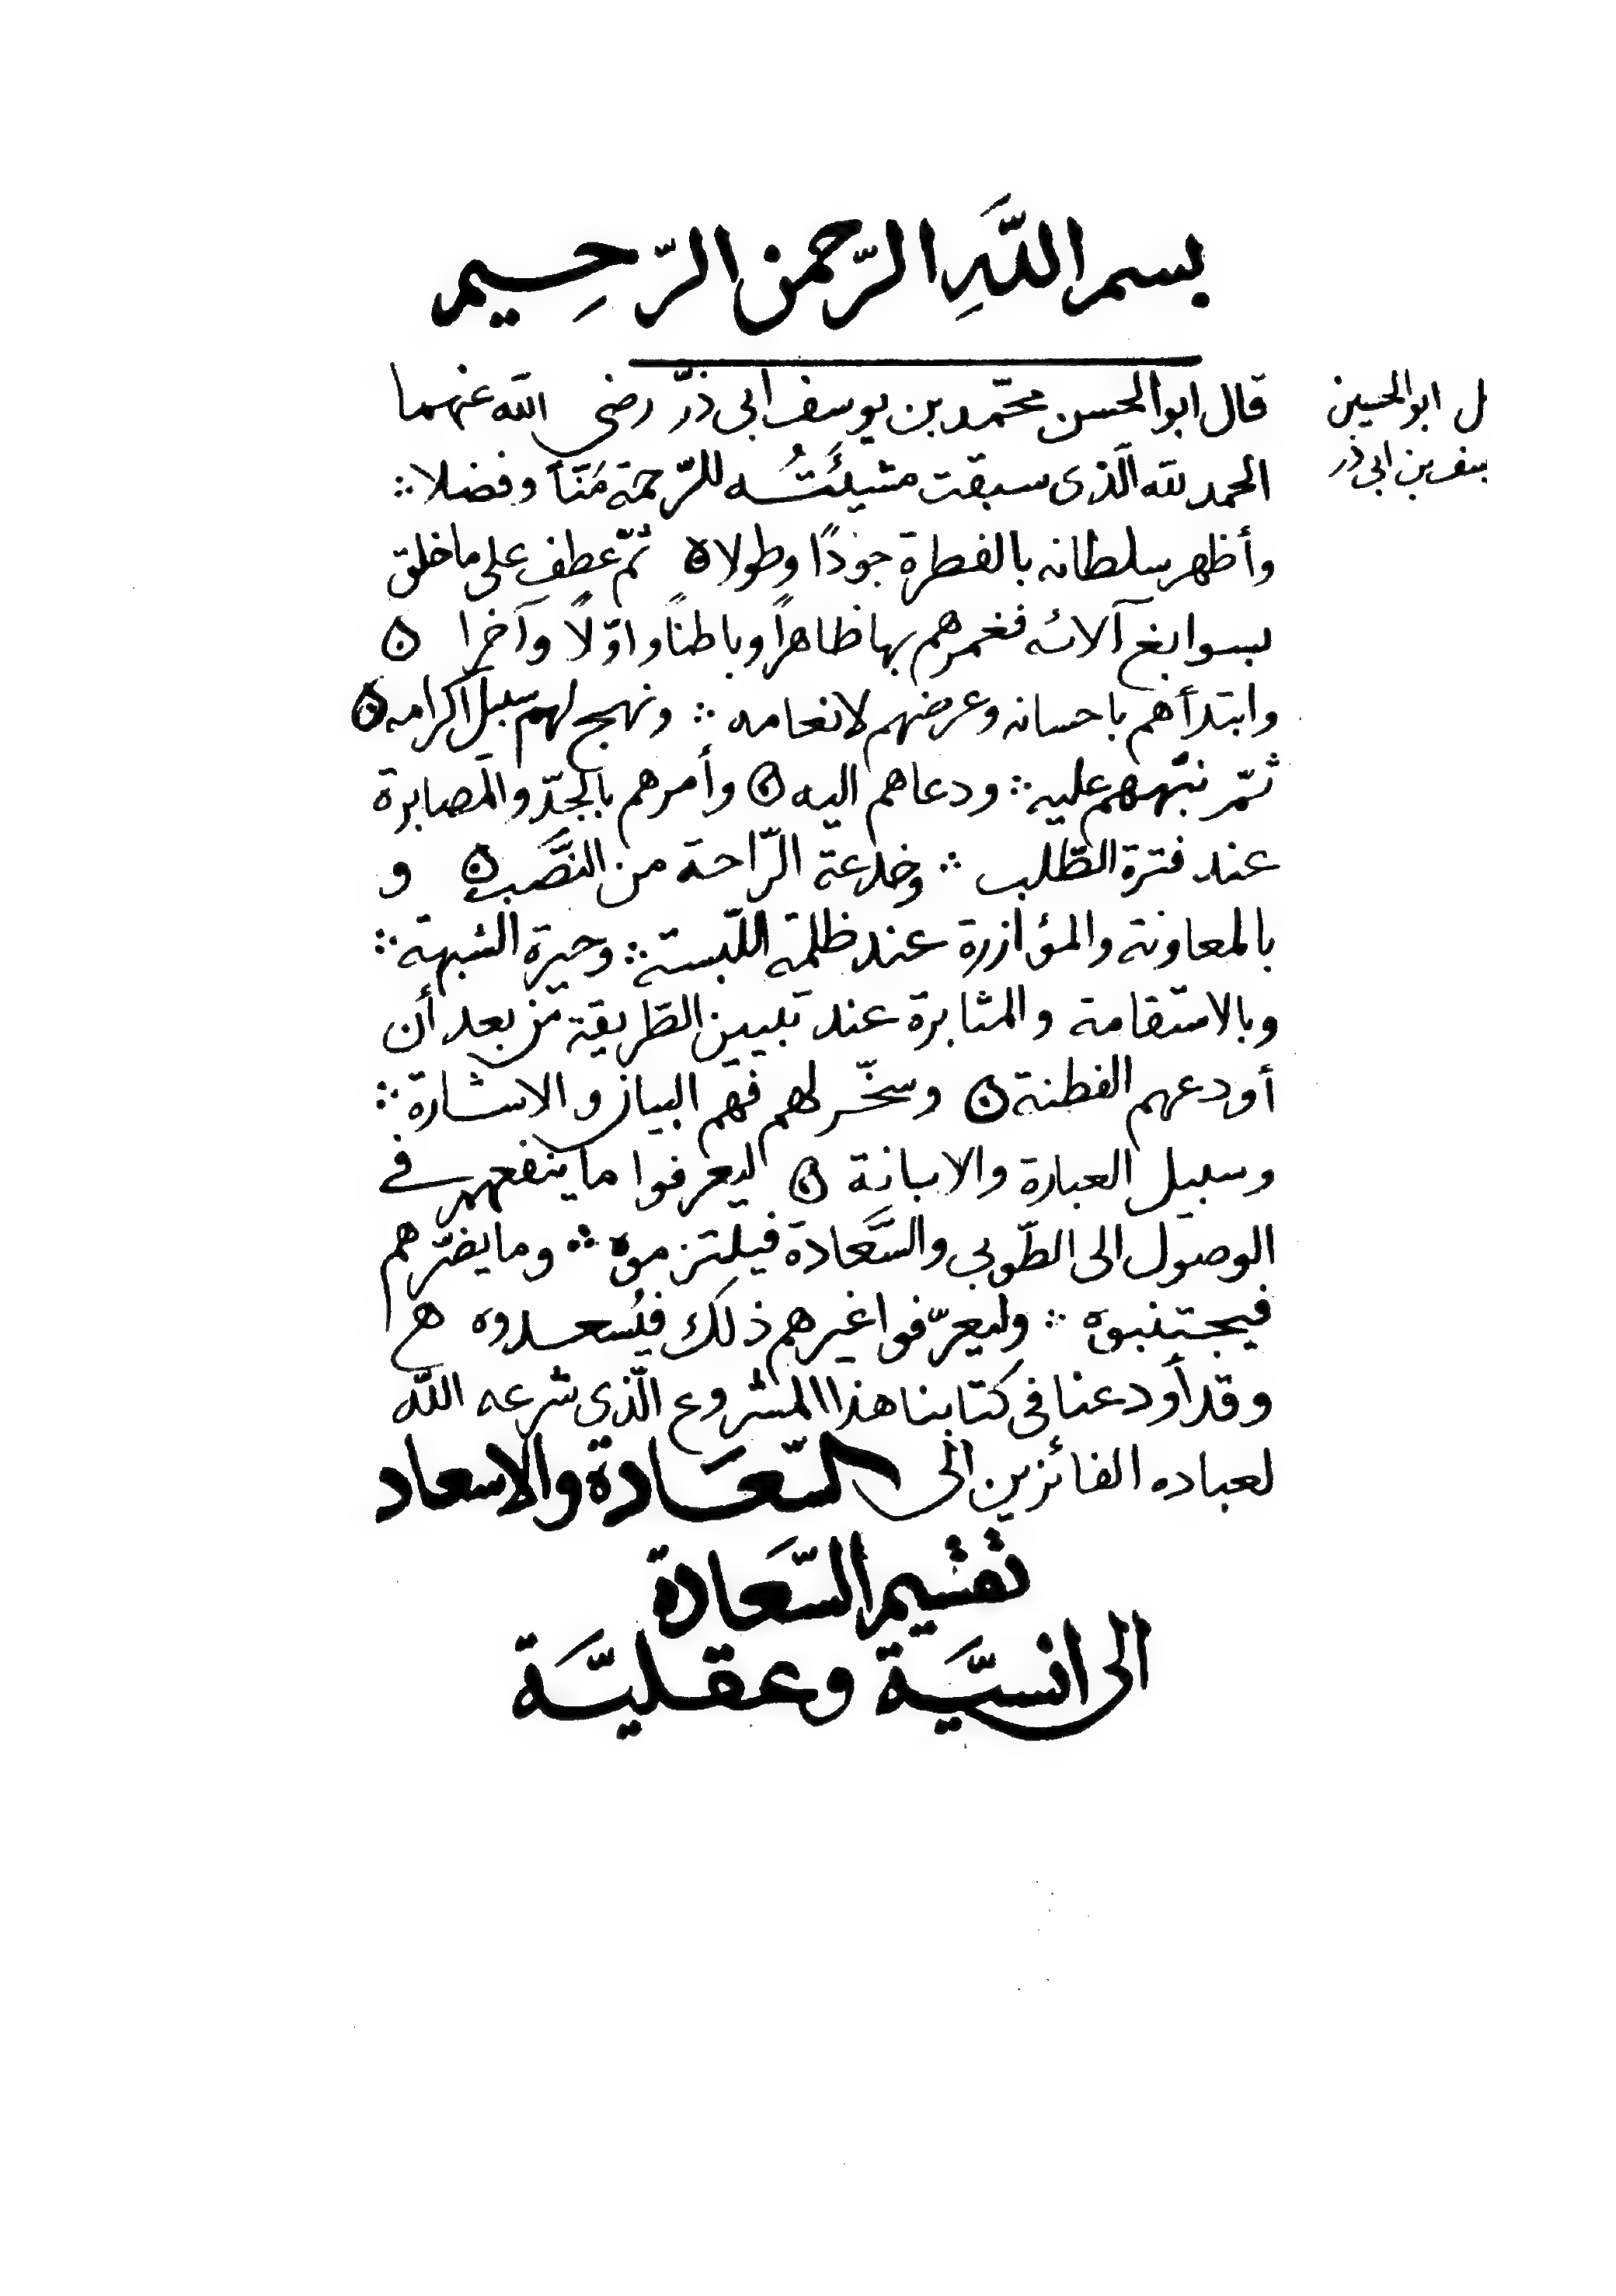 بسم اللَّهِ الرّحمن الرّحِيم
قال ابوالحسن محمّد بن يوسف ابى ذرّ رضى الله عنهما
ل ابوالحسين
سف بن ابى ذر
الحمد لله الّذى سبقت مشيئَتُه للرّحمة مَنّاً وفضلا ∴
وأظهر سلطانه بالفطرة جوداً وطولا ۞ ثمّ عطف على ما خلق
بسوابغ آلائه فغمرهم بها ظاهراً وباطناً واوّلاً وآخرا ۞
وابتدأهم باحسانه وعرضهم لانعامه ∴ ونهج لهم سبيل اكرامه ۞
ثمّ نبّههم عليه ∴ ودعاهم اليه ۞ وأمرهم بالجدّ والمصابرة
عند فترة الطّلب ∴ وخدعة الرّاحة من النَّصَب ۞ و
بالمعاونة والمؤازرة عند ظلمة اللّبسة ∴ وحيرة الشبهة ∴
وبالاستقامة والمثابرة عند تبيين الطّريقة من بعد أن
أودعهم الفطنة ۞ وسخّر لهم فهم البيان والاشارة ∴
وسبيل العبارة والابانة ۞ ليعرفوا ما ينفعهم فى
الوصول الى الطّوبى والسَّعَادة فيلتزموه ∴ وما يضرّهم
فيجتنبوه ∴ وليعرّفوا غيرهم ذلك فيُسعدوه هم
وقد أودعنا فى كتابنا هذا المشروع الّذى شرعه الله
لعباده الفائزين الى السّعَادة والاسعاد
تقسيم السَّعَادة
الى انسيَّة وعقليَّة